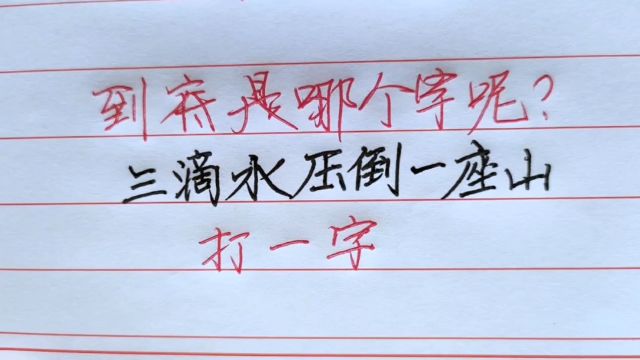 到底是哪个字呢?
三滴水压倒一座山
打一字